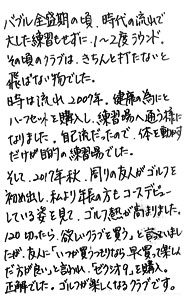 バブル全盛期の頃、時代の流れで
大した練習もせずに、1〜2度ラウンド。
その頃のクラブは、きちんと打たないと
飛ばない物でした。
時は流れ2007年。健康の為にと
ハーフセットを購入し、練習場へ通う様に
なりました。自己流だったので、体を動かす
だけが目的の練習場でした。
そして、2007年秋、周りの友人がゴルフを
初め出し、私より年長の方もコースデビュー
している姿を見て、ゴルフ熱が高まりました。
120切ったら、欲しいクラブを買う。と言っていまし
たが、友人に「いつか買うつもりなら、早く買って楽しん
だ方が良い。」と言われ、「ゼクシオ」を購入。
正解でした。ゴルフが楽しくなるクラブです。